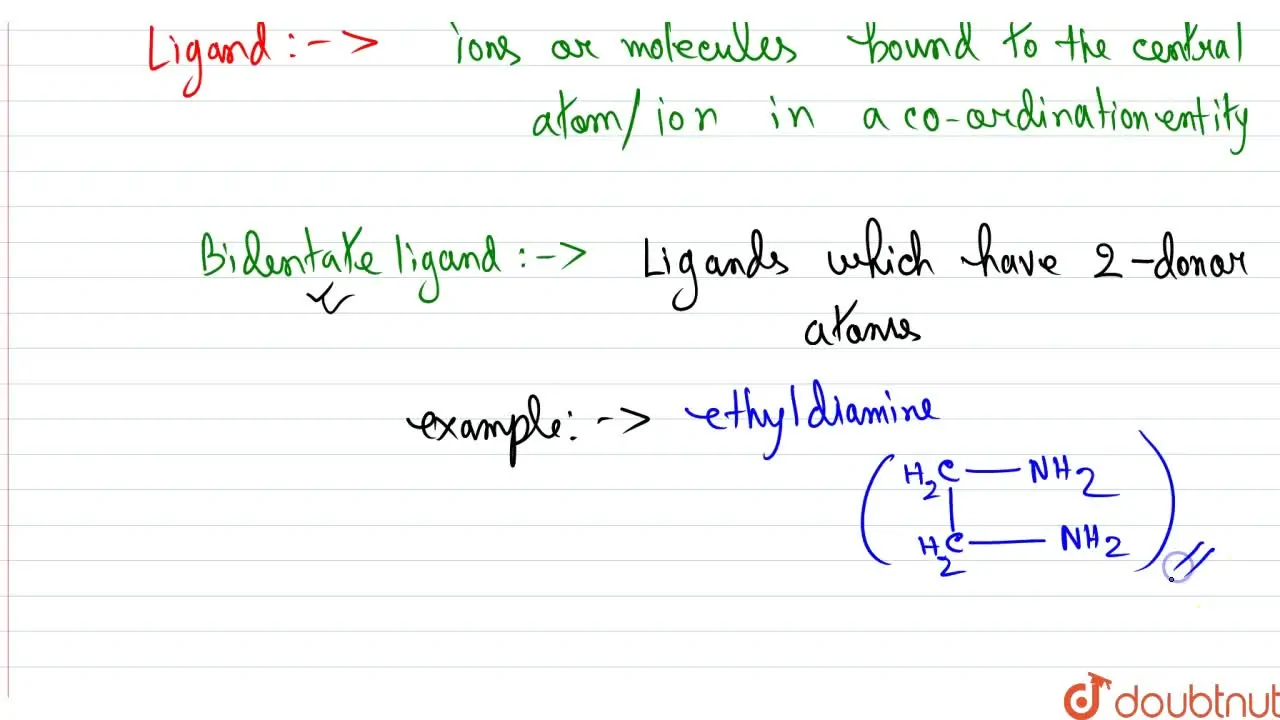 Ligand :-> ions or molecules bound to the central
atom/ion in a co-ordination entity
Bidentate ligand :-> Ligands which have 2-donor
atoms
example :-> ethyldiamine
H2C — NH2
H2C — NH2
doubtnut